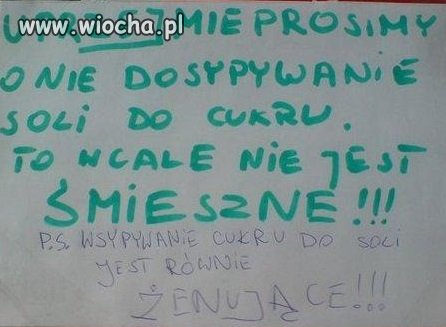 www.wiocha.pl
UPRZEJMIE PROSIMY
O NIE DOSYPYWANIE
SOLI DO CUKRU.
TO WCALE NIE JEST
ŚMIESZNE!!!
P.S. WSYPYWANIE CUKRU DO SOLI
JEST RÓWNIE
ŻENUJĄCE!!!